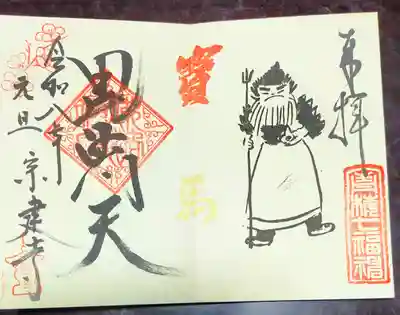 奉拝
青梅七福神
寶
馬
毘沙門天
令和八年
元旦 宗建寺